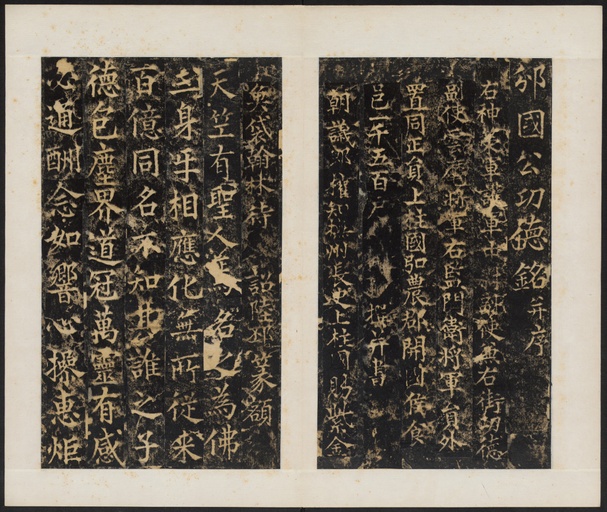 邠國公功德銘并序
右神策軍護軍中尉副使兼右街功德
副使雲麾將軍右監門衛將軍員外
置同正員上柱國弘農郡開國侯食
邑一千五百戶 撰并書
朝議郎權知撫州長史上柱國賜紫金
魚袋翰林待詔陸邳篆額
天竺有聖人焉名之為佛
三身牙相應化無所從来
百億同名不知其誰之子
德包塵界道冠萬靈有感
必通酬念如響心操惠炬